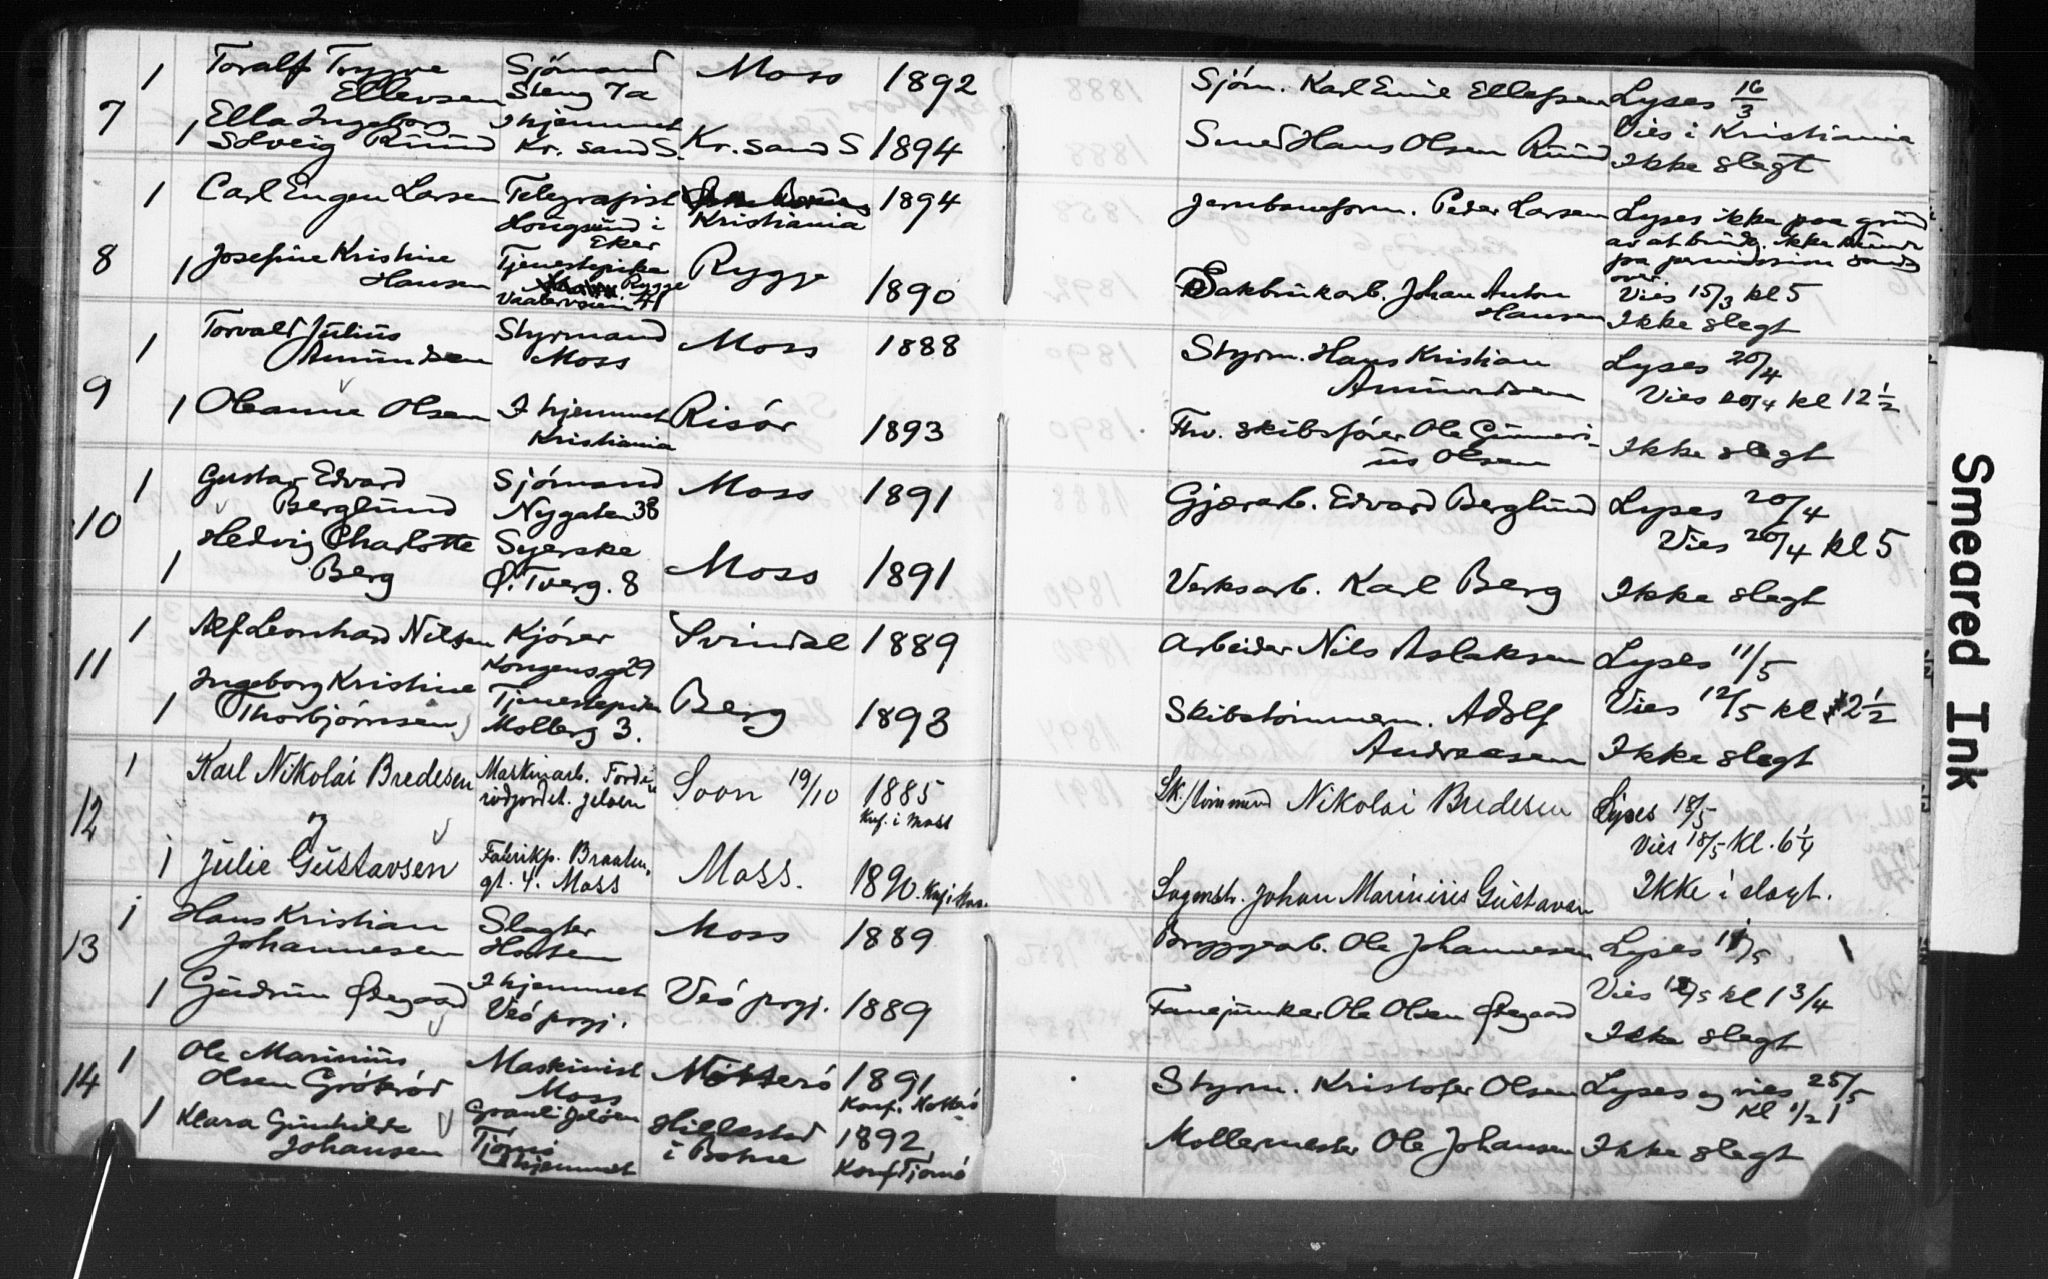 1 Toralf Trygve Sjómand Moss 1892 Sjöm. Karl Emil Ellefsen Lyses 16/3
Ellevsen Steng 7a
7 Ella Ingeborg I hjemmet Vies i Kristiania
1 Solveig Ruud Kr. sand S. Kr. sand S 1894 Smed Hans Olsen Ruud Ikke slegt
1 Carl Eugen Larsen Telegrafist 1894 Jernbaneform. Peder Larsen Lyses ikke paa grund
Hougsund i Kristiania av at
Eker
8 Josefine Kristine Tjenestepike Rygge Vies 15/3 kl 5
1 Hansen Rygge 1890 Sakbrukarb. Johan Anton
Hansen Ikke slegt
1 Torvald Julius Styrmand Moss 1888 Styrm. Hans Kristian Lyses 20/4
Amundsen Moss Amundsen Vies 20/4 kl 12 1/2
9
1 Oleanne Olsen I hjemmet Risór 1893 Fhv. skibsfórer Ole Gunneri-
Kristiania us Olsen Ikke slegt
1 Gustav Edvard Sjómand Moss 1891 Gjærarb. Edvard Berglund Lyses 20/4
Berglund Nygaten 38
10 Hedvig Charlotte Syerske Vies 20/4 kl 5
1 Berg Ø. Tverg. 8 Moss 1891 Verksarb. Karl Berg Ikke slegt
1 Alf Leonhard Nilsen Kjórer Svindal 1889 Arbeider Nils Aslaksen Lyses 11/5
Kongensg 29
11 Ingeborg Kristine Tjenestepike Berg Vies 12/5 kl 2 1/2
1 Thorbjórnsen Mollerg 3. 1893 Skibstómmerm. Adolf
Andreasen Ikke slegt
1 Karl Nikolai Bredesen Maskinarb. Soon 19/10 1885 Nikolai Bredesen Lyses 18/5
Jeløen Knf. i Moss
12 og Vies 18/5 Kl. 6 1/4
1 Julie Gustavsen Fabrikp. Braaten- Moss. 1890. Johan Marinius Gustavsen Ikke i slegt.
gt. 4. Moss
1 Hans Kristian Slagter Moss 1889 Bryggearb. Ole Johannesen Lyses 11/5
Johannesen Horten
13 Vies 12/5 kl 1 3/4
1 Gudrun Ødegaard I hjemmet Veó prgj. 1889 Fanejunker Ole Olsen Ødegaard
Veó prgj. Ikke slegt
1 Ole Marinius Maskinist Mótteró 1891 Styrm. Kristofer Olsen Lyses og vies 25/5
Olsen Grótród Moss Konf. Notteró Kl 1/2 1
14 Granli Jelóen
1 Klara Gunhilda Tjómó Hillestad 1892 Mollermester Ole Johansen Ikke slegt
Johansen I hjemmet i Botne Konf Tjómó
Smeared Ink